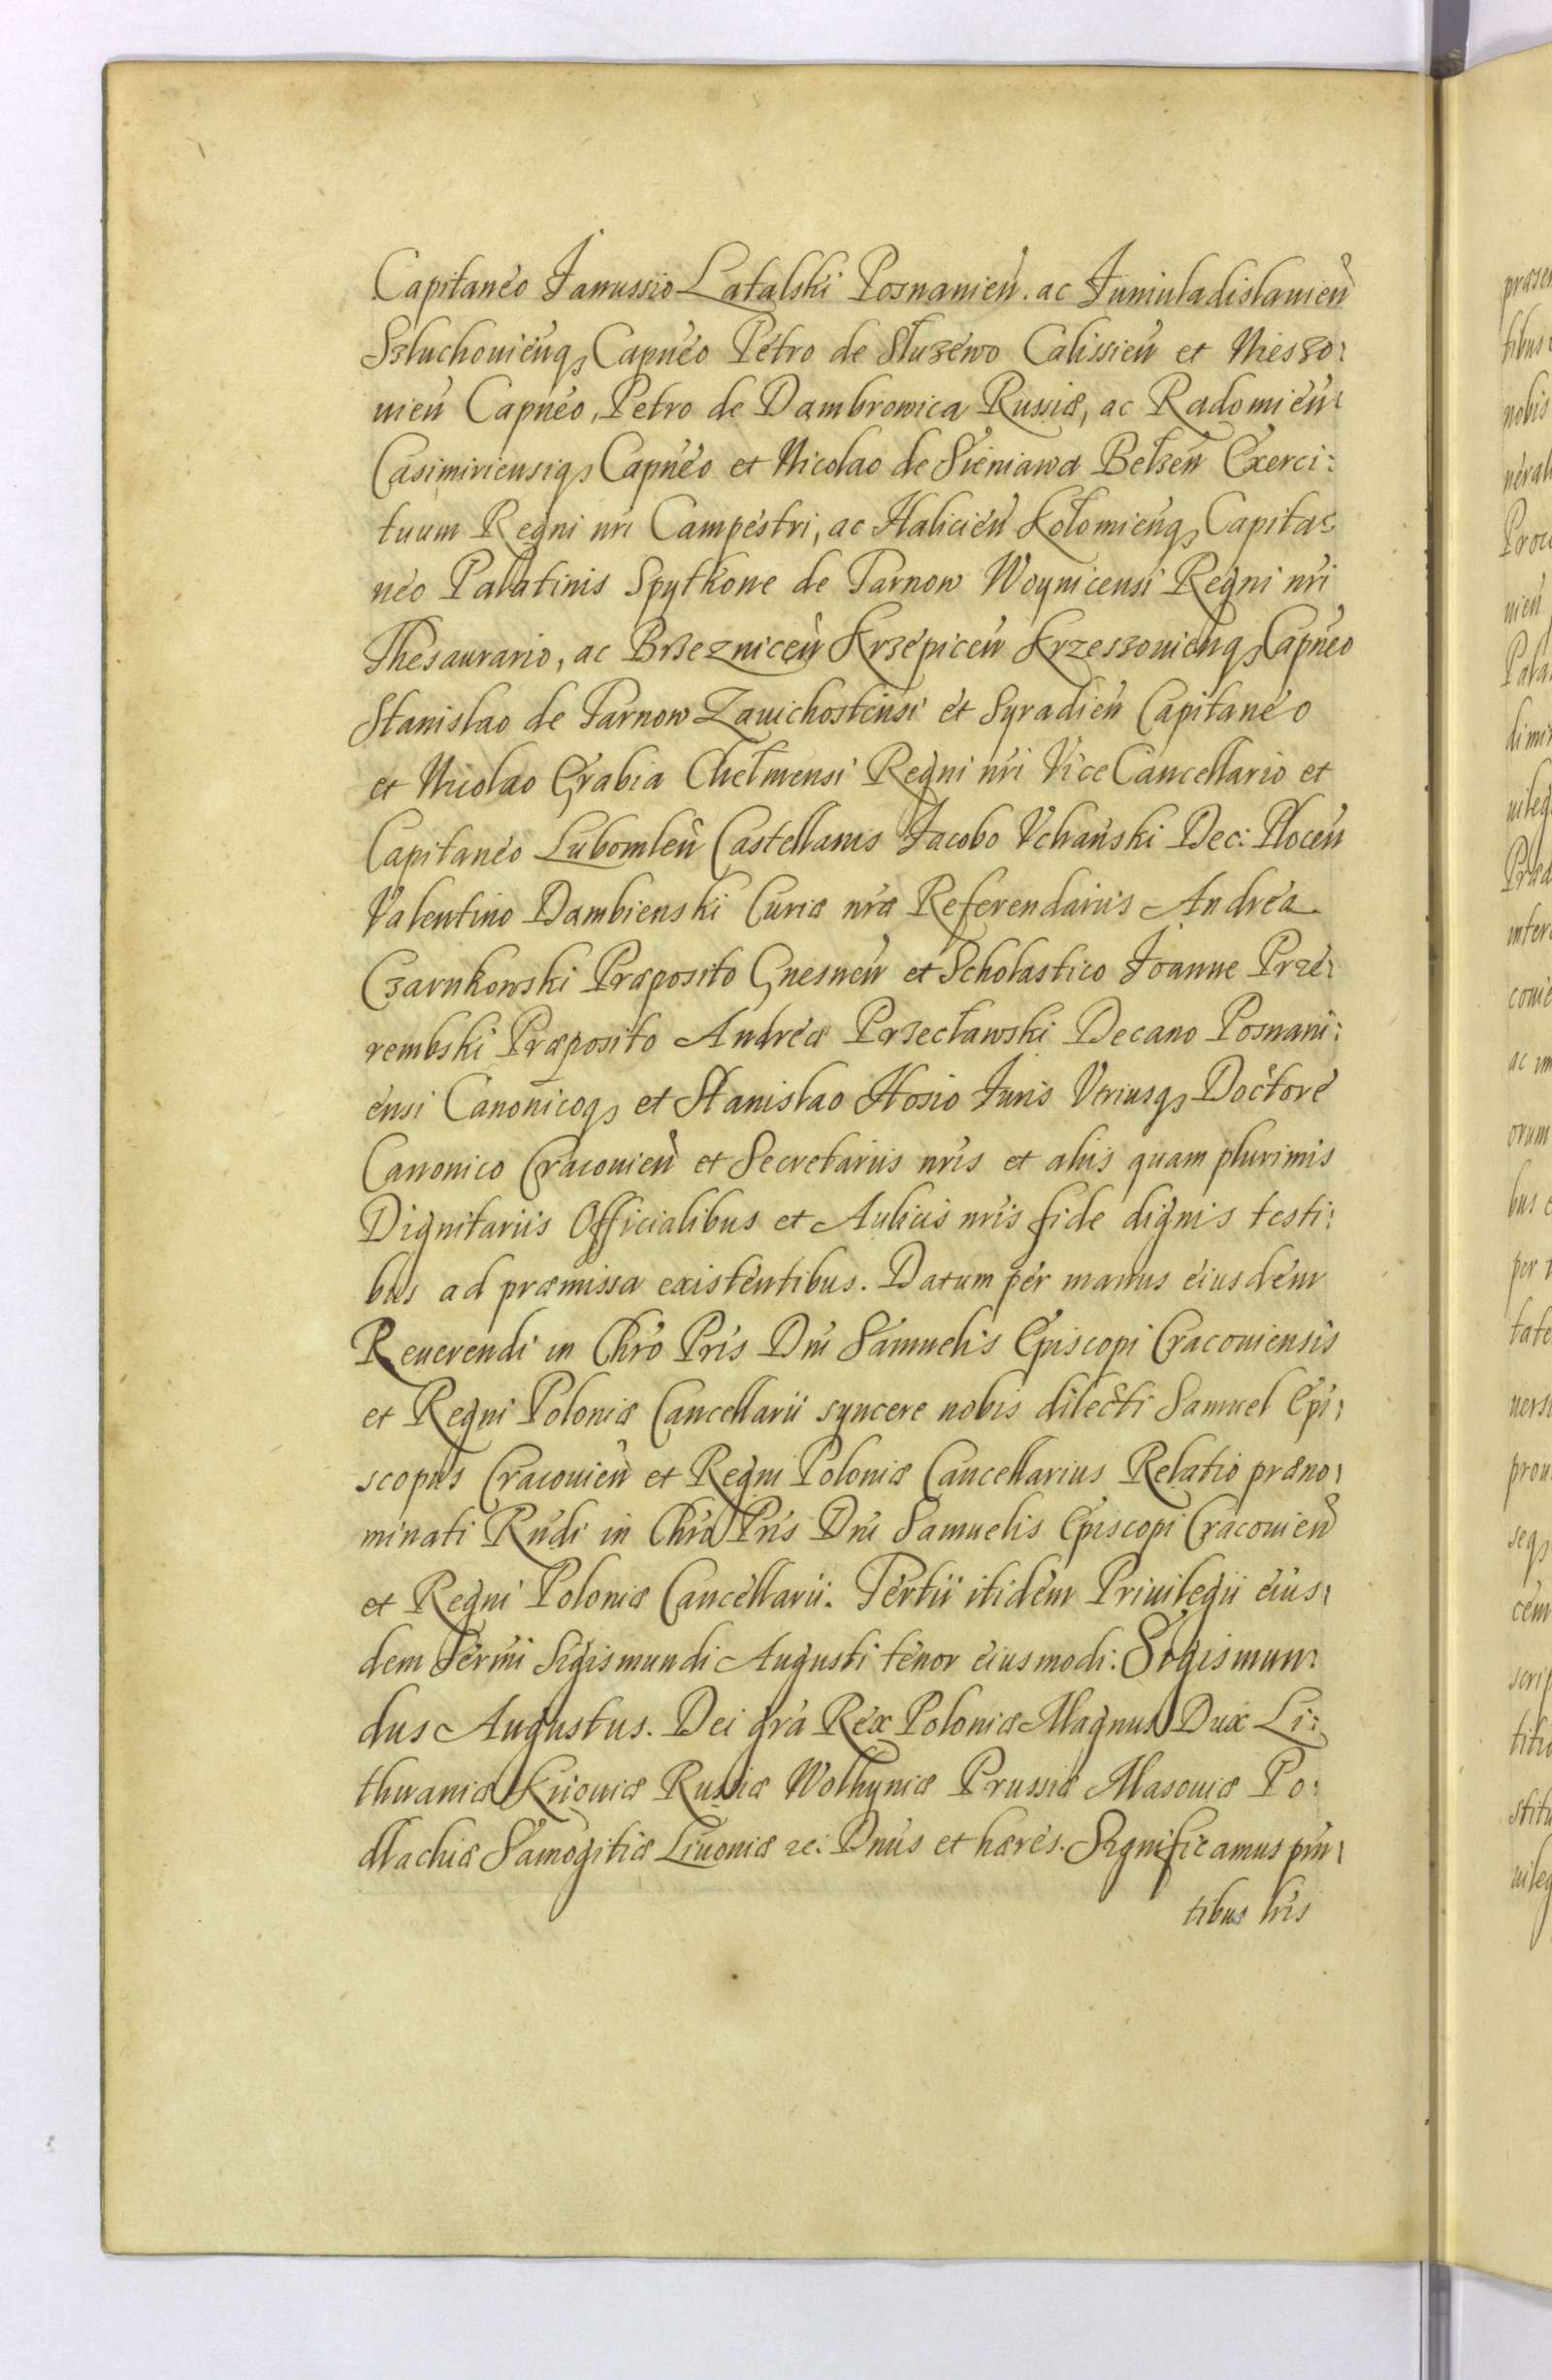 Capitaneo Janussio Latalski Posnanień. ac Juniuladislauień
Szluchouienq₃ Capńeo Petro de Słuzewo Calissień et Nieszo:
uień Capńeo, Petro de Dambrowica Russiæ, ac Radomień:
Casimiriensiq₃ Capńeo et Nicolao de Sieniawa Belzeń Exerci:
tuum Regni nri Campestri, ac Halicień Kołomienq₃ Capita:
neo Palatinis Spytkone de Tarnow Woynicensi Regni nri
Thesaurario, ac Brzezniceń Krzepiceń Krzeszouienq₃ Capńeo
Stanislao de Tarnow Zauichostensi et Syradień Capitaneo
et Nicolao Grabia Chełmensi Regni nri ViceCancellario et
Capitaneo Lubomleń Castellanis Jacobo Vchański Dec: Ploceń
Valentino Dambienski Curiæ nræ Referendariis Andrea
Czarnkowski Præposito Gnesneń et Scholastico Joanne Prze:
rembski Præposito Andreæ Przecławski Decano Posnani:
ensi Canonicoq₃ et Stanislao Hosio Juris Vtriusq₃ Doctore
Canonico Cracouień et Secretariis nris et aliis quam plurimis
Dignitariis Officialibus et Aulicis nris fide dignis testi:
bus ad præmissa existentibus. Datum per manus eiusdem
Reuerendi in Chro Pris Dni Samuelis Episcopi Cracouiensis
et Regni Poloniæ Cancellarii syncere nobis dilecti Samuel Epi:
scopus Cracouień et Regni Poloniæ Cancellarius Relatio præno:
minati Rndi in Chro Pris Dni Samuelis Episcopi Cracouień
et Regni Poloniæ Cancellarii. Tertii itidem Priuilegii eius:
dem Sermi Sigismundi Augusti tenor eiusmodi: Sigismun:
dus Augustus. Dei gra Rex Poloniæ Magnus Dux Li:
thuaniæ Kiiouiæ Russiæ Wolhyniæ Prussiæ Masouiæ Po:
dlachiæ Samogitiæ Liuoniæ ꝛc: Dnus et hæres. Significamus pñ:
tibus lris